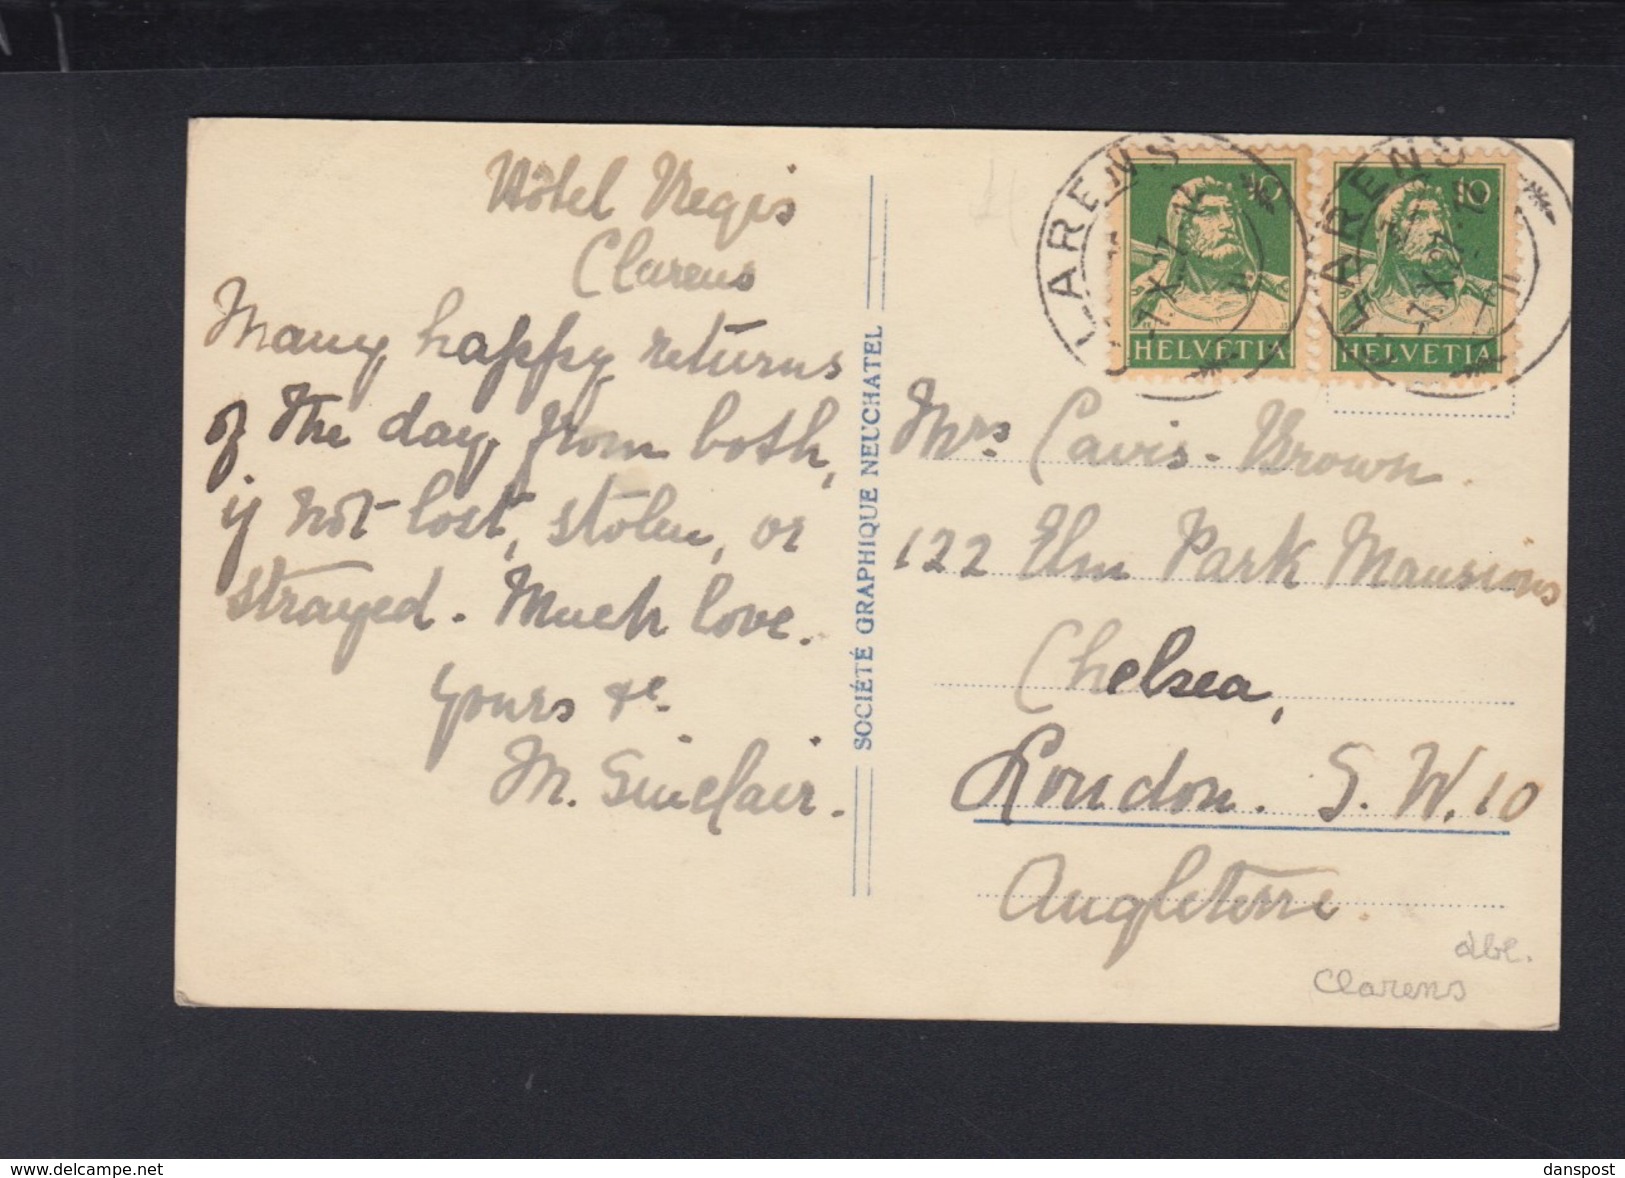 Hôtel Regis
Clarens
Many happy returns
of the day from both,
if not lost, stolen, or
strayed. Much love.
Yours &c.
M. Sinclair.
SOCIÉTÉ GRAPHIQUE NEUCHATEL
CLARENS
10
HELVETIA
CLARENS
10
HELVETIA
Mrs Cavis-Brown.
122 Elm Park Mansions
Chelsea,
London. S.W.10
Angleterre.
Clarens
www.delcampe.net
danspost